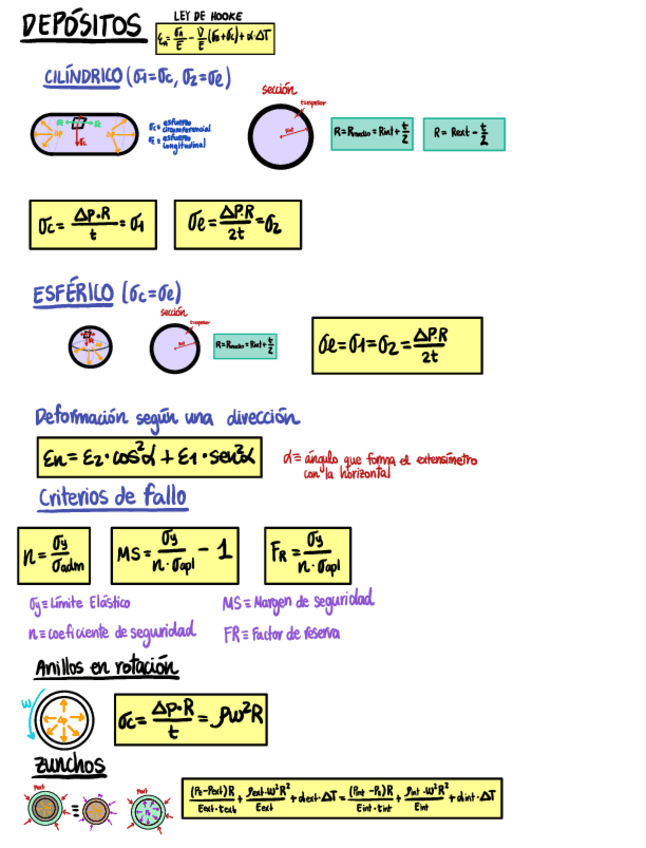 DEPÓSITOS
LEY DE HOOKE
εn = σn/E - ν/E (σe+σc) + α·ΔT
CILÍNDRICO (σ1=σc, σ2=σe)
sección
t=espesor
σc = esfuerzo circunferencial
σe = esfuerzo longitudinal
R=Rmedio = Rint + t/2
R = Rext - t/2
σc = ΔP·R/t = σ1
σe = ΔP·R/2t = σ2
ESFÉRICO (σc=σe)
sección
t=espesor
R=Rmedio = Rint + t/2
σe = σ1 = σ2 = ΔP·R/2t
Deformación según una dirección
εn = ε2·cos²α + ε1·sen²α
α = ángulo que forma el extensímetro
con la horizontal
Criterios de fallo
n = σy/σadm
MS = σy/n·σapl - 1
FR = σy/n·σapl
σy ≡ Límite Elástico
MS ≡ Margen de seguridad
n ≡ coeficiente de seguridad
FR ≡ Factor de reserva
Anillos en rotación
ω
Δp
σc = Δp·R/t = ρω²R
Zunchos
Pext
Pext
(Pc-Pext)R/Eext·text + ρext·ω²R²/Eext + αext·ΔT = (Pint-Pc)R/Eint·tint + ρint·ω²R²/Eint + αint·ΔT